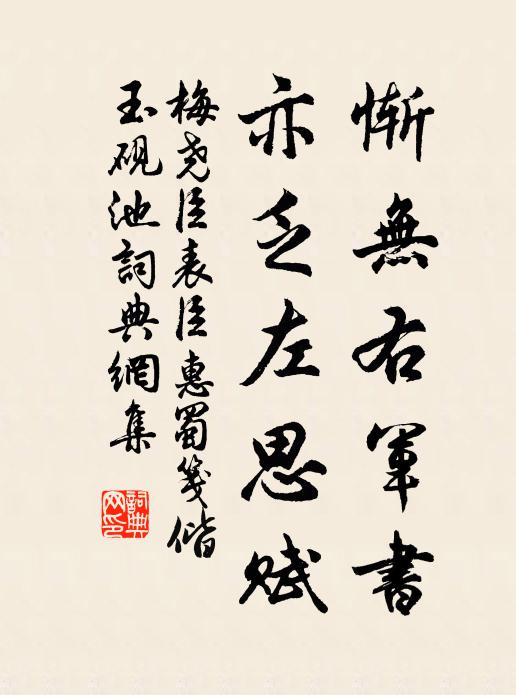 慚無右軍書
亦乏左思賦
梅堯臣表臣惠蜀箋偕
玉硯池詞典網集
詞典網印